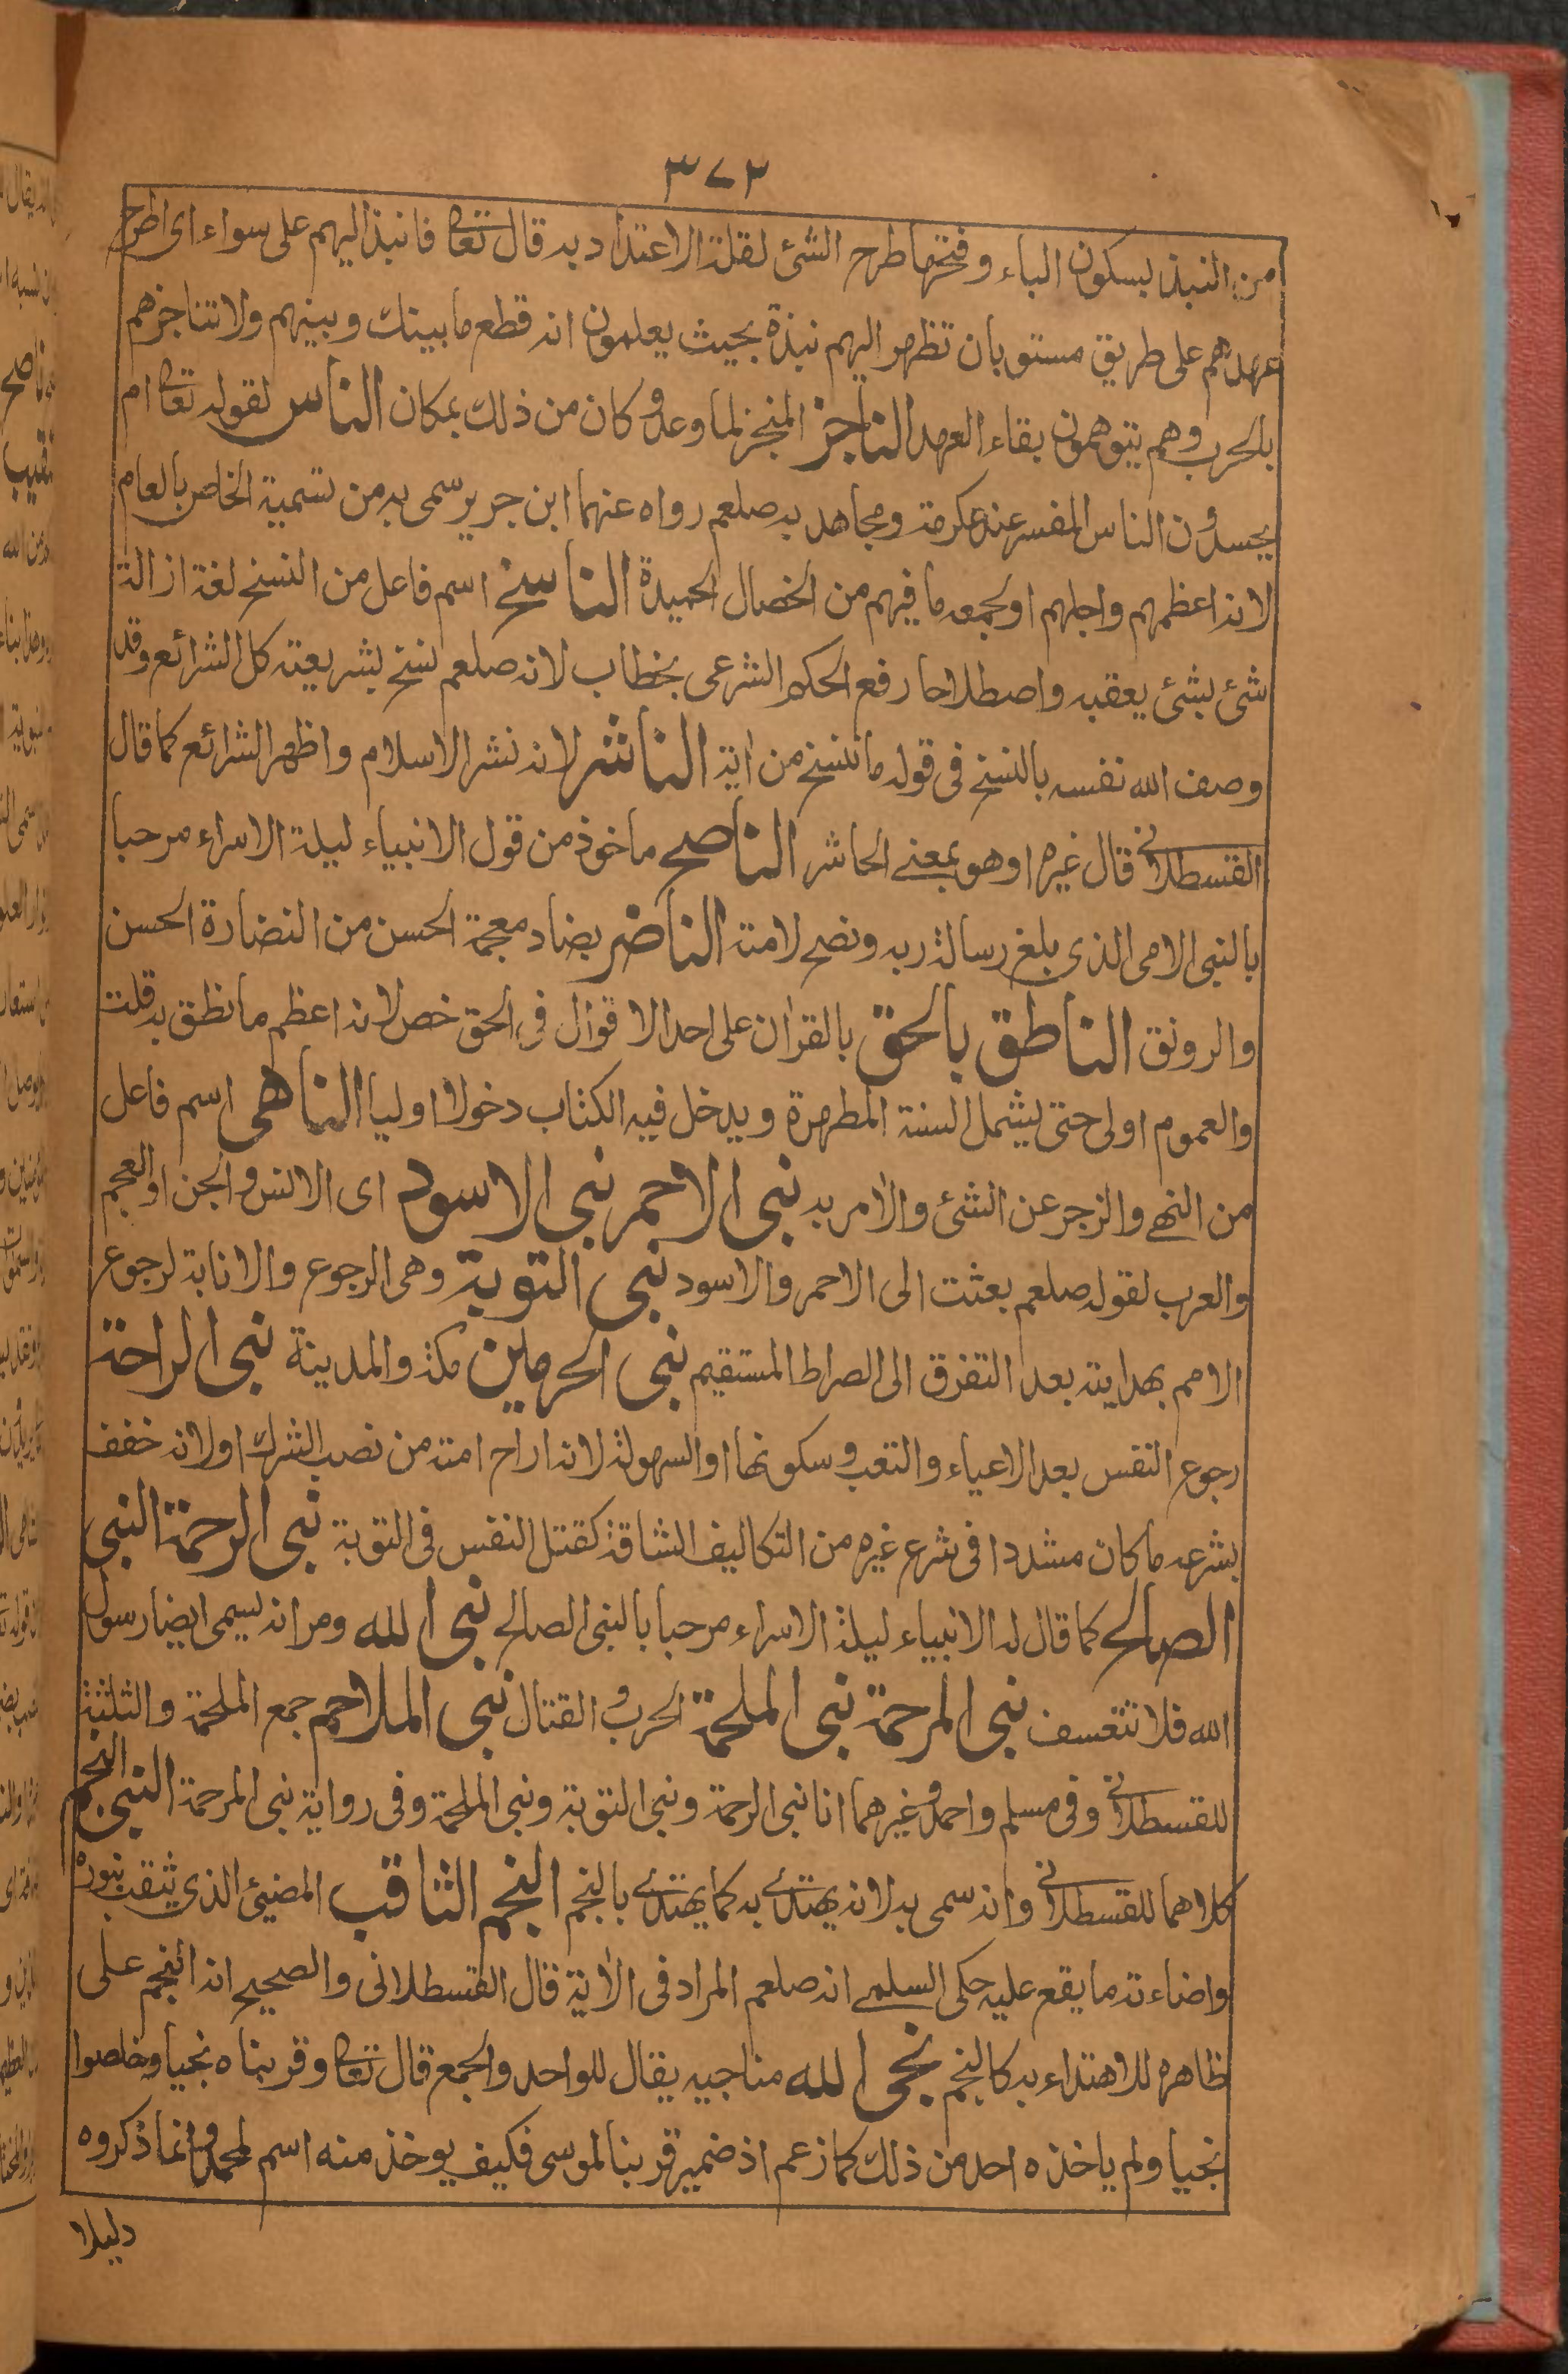 ٣٧٢
من النبذ بسكون الباء وفتحها طرح الشئ لقلة الاعتداد به قال تعا فانبذ اليهم على سواء اى اطرح
عهدهم على طريق مستو بان تظهر اليهم نبذة بحيث يعلمون انه قطع ما بينك وبينهم ولا تناجزهم
بالحرب وهم يتوهمون بقاء العهد الناجز المنجز لما وعد وكان من ذلك بمكان الناس لقوله تعا ام
يحسدون الناس المفسر عند عكرمة ومجاهد به صلعم رواه عنهما ابن جرير سمى به من تسمية الخاص بالعام
لانه اعظمهم واجلهم او لجمعه ما فيهم من الخصال الحميدة الناسخ اسم فاعل من النسخ لغة ازالة
شئ بشئ يعقبه واصطلاحا رفع الحكم الشرعى بخطاب لانه صلعم نسخ بشريعته كل الشرائع وقد
وصف الله نفسه بالنسخ فى قوله ما ننسخ من اية الناشر لانه نشر الاسلام واظهر الشرائع كما قال
القسطلانى قال غيره او هو بمعنے الحاشر الناصح ماخوذ من قول الانبياء ليلة الاسراء مرحبا
بالنبى الامى الذى بلغ رسالة ربه ونصح لامته الناضر بضاد معجمة الحسن من النضارة الحسن
والرونق الناطق بالحق بالقران على احد الاقوال فى الحق خص لانه اعظم ما نطق به قلت
والعموم اولى حتى يشمل السنة المطهرة ويدخل فيه الكتاب دخولا اوليا الناهى اسم فاعل
من النهے والزجر عن الشئ والامر به نبى الاحمر نبى الاسود اى الانس والجن او العجم
والعرب لقوله صلعم بعثت الى الاحمر والاسود نبى التوبة وهى الرجوع والانابة لرجوع
الامم بهدايته بعد التفرق الى الصراط المستقيم نبى الحرمين مكة والمدينة نبى الراحة
رجوع النفس بعد الاعياء والتعب وسكونها او السهولة لانه اراح امته من نصب الشرك او لانه خفف
بشرعه ما كان مشددا فى شرع غيره من التكاليف الشاقة كقتل النفس فى التوبة نبى الرحمة النبى
الصالح كما قال له الانبياء ليلة الاسراء مرحبا بالنبى الصالح نبى الله ومر انه يسمى ايضا رسول
الله فلا نتعسف نبى المرحمة نبى الملحمة الحرب والقتال نبى الملاحم جمع الملحمة والثلثة
للقسطلانى وفى مسلم واحمد وغيرهما انا نبى الرحمة ونبى التوبة ونبى الملحمة وفى رواية نبى المرحمة النبى النجم
كلاهما للقسطلانى وانه سمى به لانه يهتدے به كما يهتدے بالنجم النجم الثاقب المضيئ الذى يثقب بنوره
واضاءته ما يقع عليه حكى السلمے انه صلعم المراد فى الاية قال القسطلانى والصحيح انه النجم على
ظاهره للاهتداء به كالنجم نجى الله مناجيه يقال للواحد والجمع قال تعا وقربناه نجيا وخلصوا
نجيا ولم ياخذه احد من ذلك كما زعم اذ ضمير قربنا لموسى فكيف يوخذ منه اسم لمحمد وانما ذكروه
دليلا